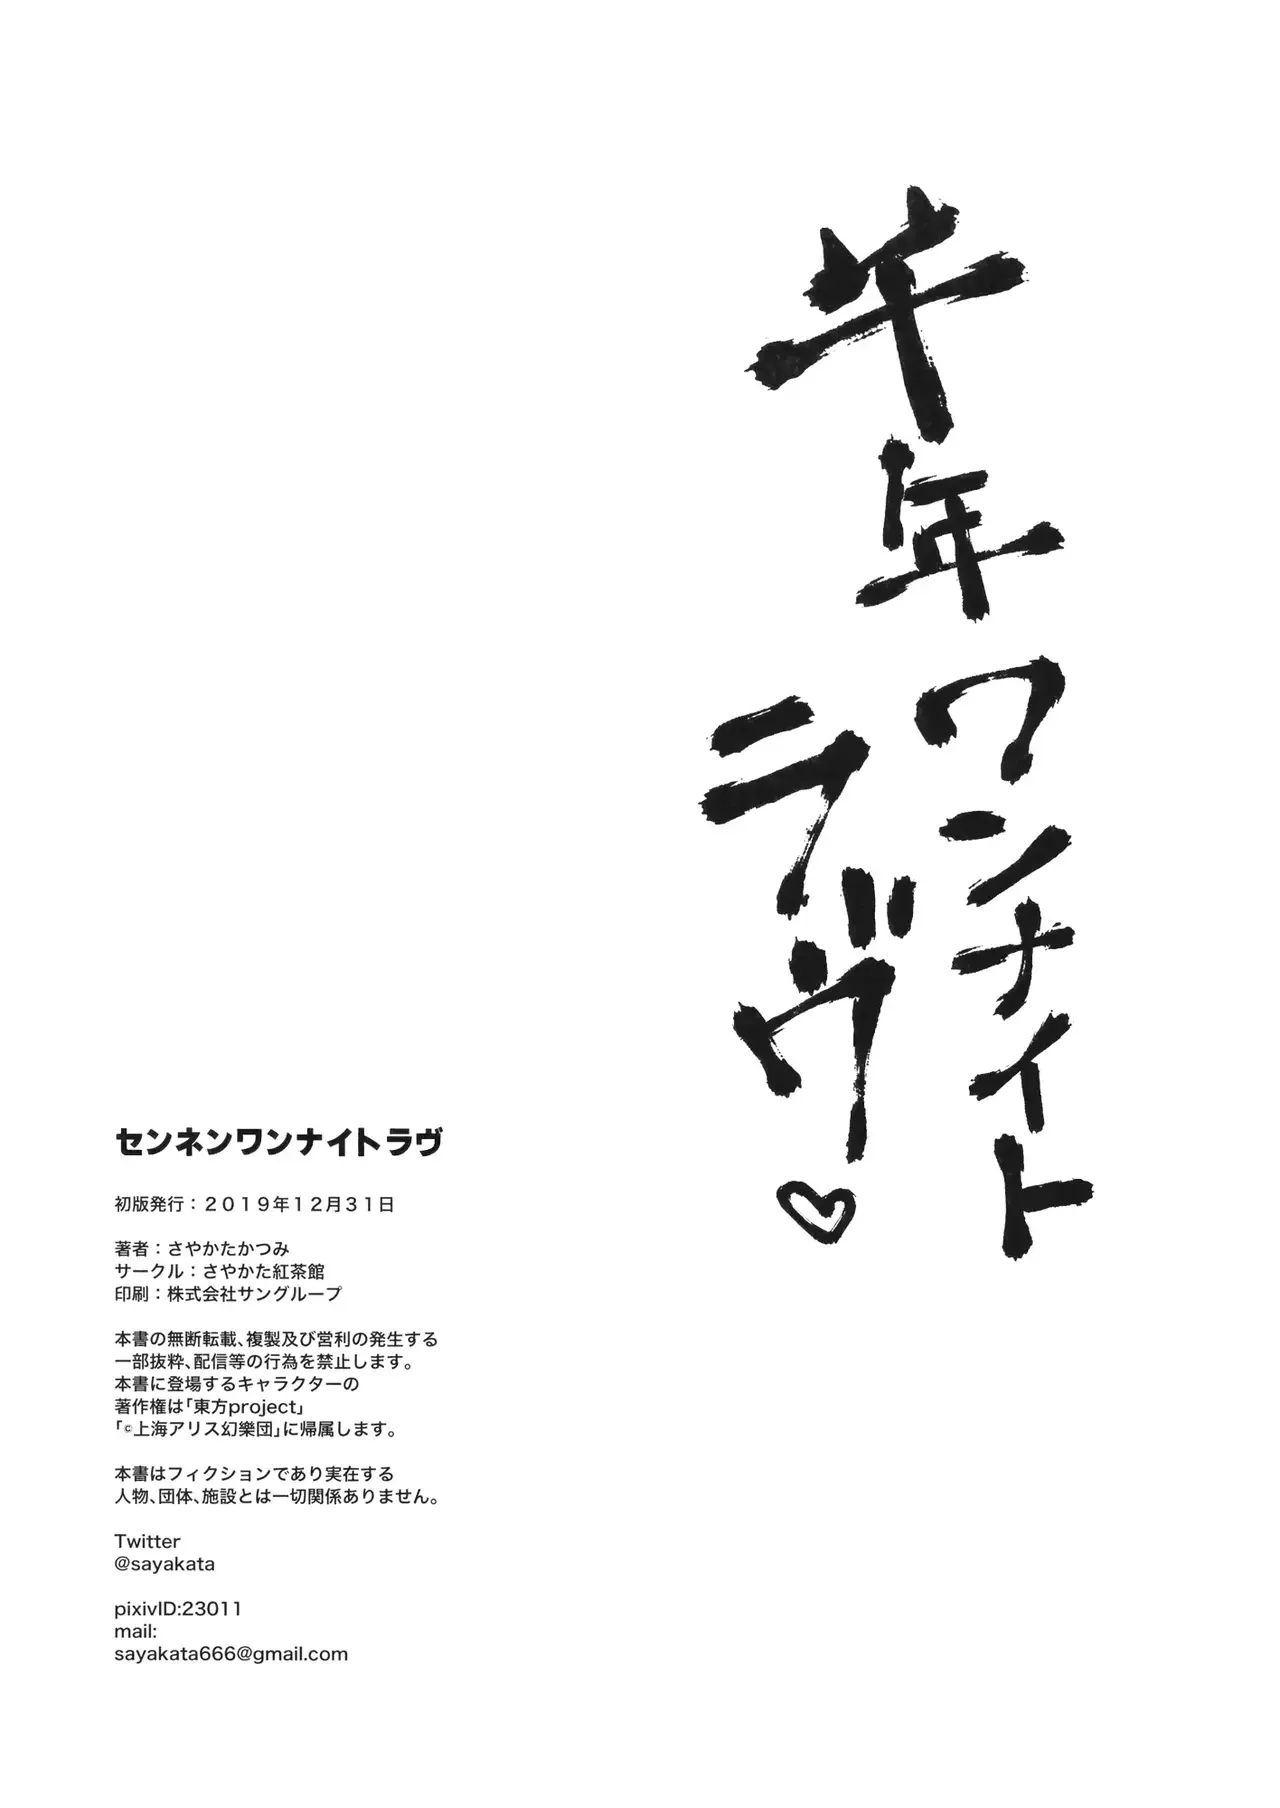 千年ワンナイト
ラヴ♡
センネンワンナイトラヴ
初版発行：２０１９年１２月３１日
著者：さやかたかつみ
サークル：さやかた紅茶館
印刷：株式会社サングループ
本書の無断転載、複製及び営利の発生する
一部抜粋、配信等の行為を禁止します。
本書に登場するキャラクターの
著作権は「東方project」
「©上海アリス幻樂団」に帰属します。
本書はフィクションであり実在する
人物、団体、施設とは一切関係ありません。
Twitter
@sayakata
pixivID:23011
mail:
sayakata666@gmail.com